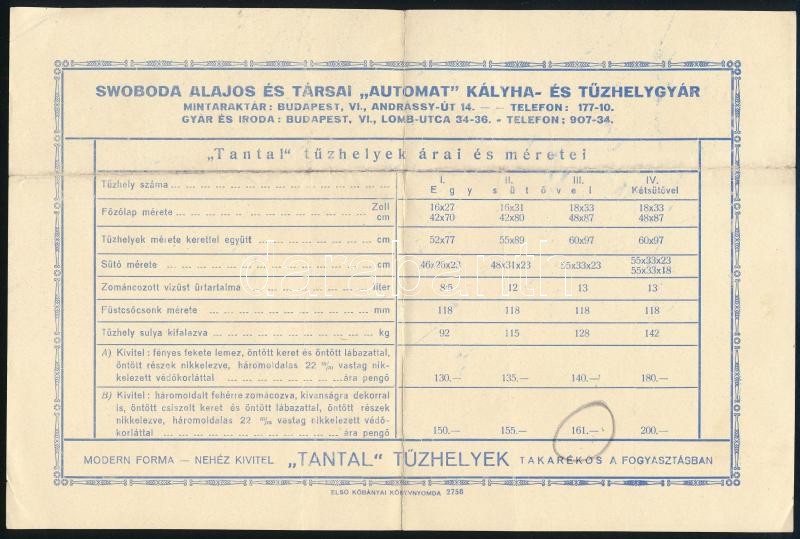 SWOBODA ALAJOS ÉS TÁRSAI „AUTOMAT" KÁLYHA- ÉS TŰZHELYGYÁR
MINTARAKTÁR: BUDAPEST, VI., ANDRÁSSY-ÚT 14. — — TELEFON: 177-10.
GYÁR ÉS IRODA: BUDAPEST, VI., LOMB-UTCA 34-36. - TELEFON; 907-34.
„Tantal" tűzhelyek árai és méretei
Tűzhely száma I. II. III. IV.
Egy sütővel Kétsütővel
Főzőlap mérete Zoll 16x27 16x31 18x33 18x33
cm 42x70 42x80 48x87 48x87
Tűzhelyek mérete kerettel együtt cm 52x77 55x89 60x97 60x97
Sütő mérete cm 46x26x23 48x31x23 55x33x23 55x33x23
55x33x18
Zománcozott vizüst űrtartalma liter 8·5 12 13 13
Füstcsőcsonk mérete mm 118 118 118 118
Tűzhely sulya kifalazva kg 92 115 128 142
A) Kivitel: fényes fekete lemez, öntött keret és öntött lábazattal,
öntött részek nikkelezve, háromoldalas 22 m/m vastag nik-
kelezett védőkorláttal ára pengő 130.— 135.— 140.— 180.—
B) Kivitel: háromoldalt fehérre zomácozva, kivanságra dekorral
is, öntött csiszolt keret és öntött lábazattal, öntött részek
nikkelezve, háromoldalas 22 m/m vastag nikkelezett védő-
korláttal ára pengő 150.— 155.— 161.— 200.—
MODERN FORMA — NEHÉZ KIVITEL „TANTAL" TŰZHELYEK TAKARÉKOS A FOGYASZTÁSBAN
ELSO KŐBÁNYAI KÖNYVNYOMDA 2758
darabanth